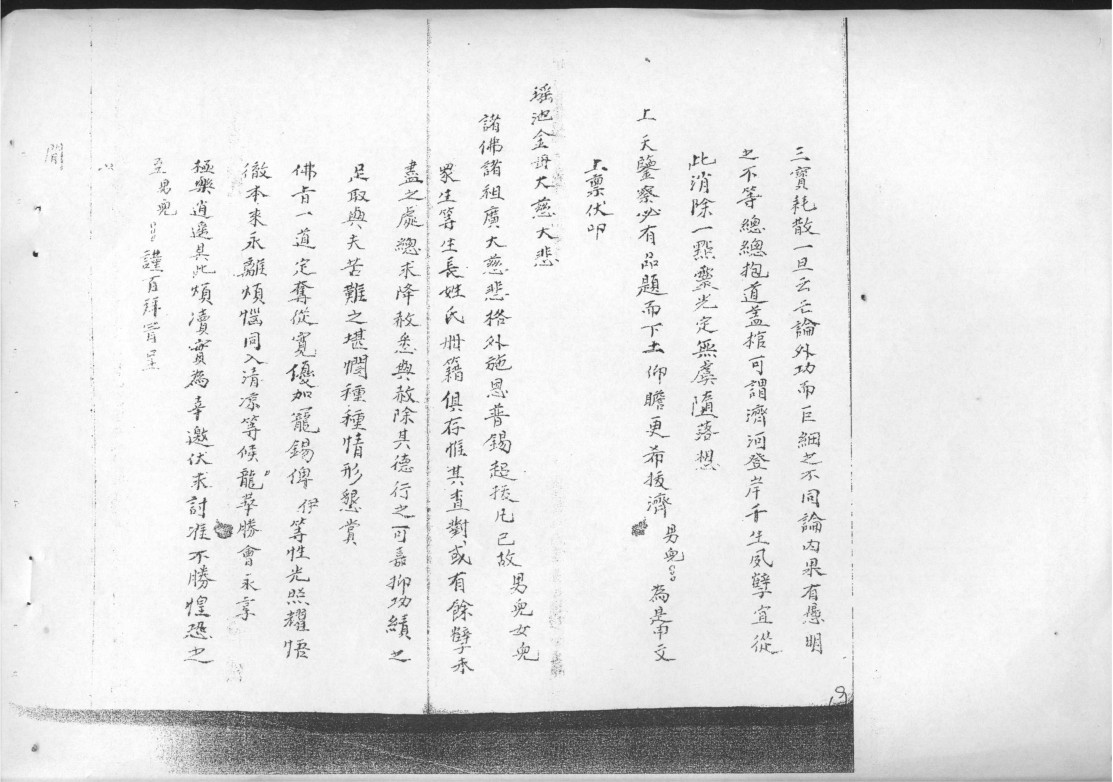 三寶耗散一旦云亡論外功而巨細之不同論內果有愚明
之不等總總抱道蓋棺可謂濟河登岸千生夙孽宜從
此消除一點靈光定無虞墮落想
上天鑒察必有品題而下土仰瞻更希援濟 男兒 為是申文
上稟伏叩
瑶池金母大慈大悲
諸佛諸祖廣大慈悲格外施恩普錫超拔凡已故 男兒女兒
眾生等生長姓氏冊籍俱存惟其查對或有餘孽未
盡之處總求降赦悉與赦除其德行之可嘉抑功績之
足取與夫苦難之堪憫種種情形懇賞
佛旨一道定奪從寬優加寵錫俾 伊等性光照耀悟
徹本來永離煩惱同入清凉等候龍華勝會永享
極樂逍遥其此煩凟實為幸邀伏求討准不勝惶恐之
至 兒 謹百拜 呈